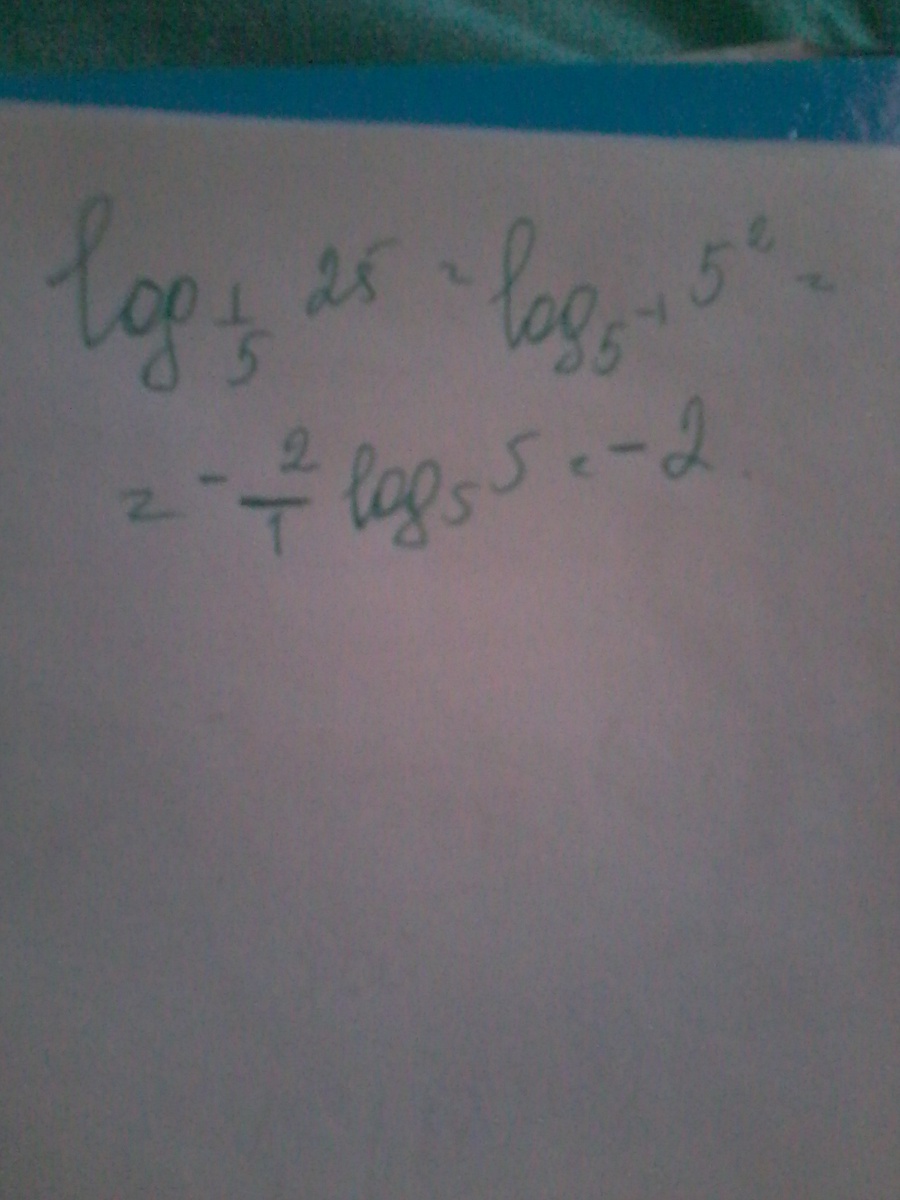 log_{1/5} 25 = log_{5^{-1}} 5^2 =
= - 2/1 log_5 5 = -2